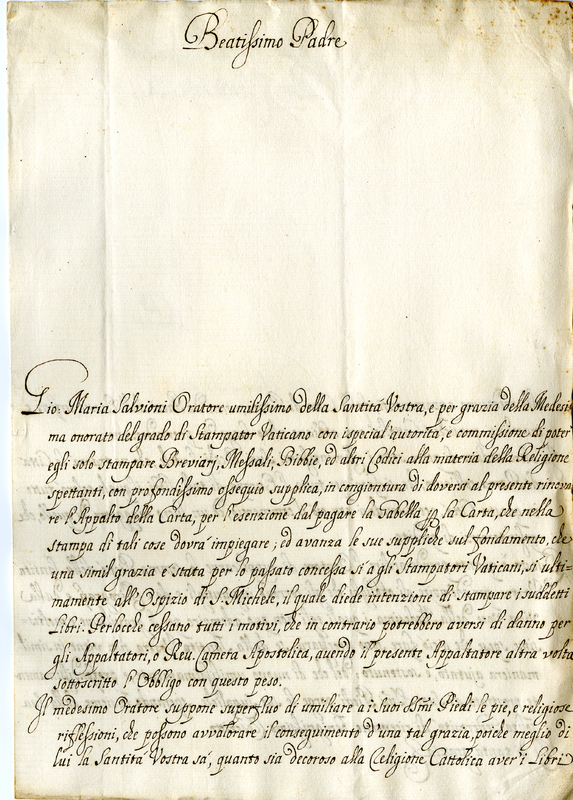 Beatissimo Padre
Gio: Maria Salvioni Oratore umilissimo della Santità Vostra, e per grazia della Medesi=
ma onorato del grado di Stampator Vaticano con ispecial' autorità, e commissione di poter
egli solo stampare Breviarj, Messali, Bibbie, ed altri Codici alla materia della Religione
spettanti, con profondissimo ossequio supplica, in congiontura di doversi al presente rinova=
re l'Appalto della Carta, per l'esenzione dal pagare la Gabella p la Carta, che nella
stampa di tali cose dovrà impiegare; ed avanza le sue suppliche sul fondamento, che
una simil grazia è stata per lo passato concessa sì agli Stampatori Vaticani, sì ulti=
mamente all'Ospizio di S. Michele, il quale diede intenzione di stampare i suddetti
Libri. Perlocche cessano tutti i motivi, che in contrario potrebbero aversi di danno per
gli Appaltatori, o Reu. Camera Apostolica, auendo il presente Appaltatore altra volta
sottoscritto l'Obbligo con questo peso.
Il medesimo Oratore suppone superfluo di umiliare a i suoi Ssmi Piedi le pie, e religiose
riflessioni, che possono avvalorare il conseguimento d'una tal grazia, poiche meglio di
lui la Santità Vostra sà, quanto sia decoroso alla Religione Cattolica aver' i Libri